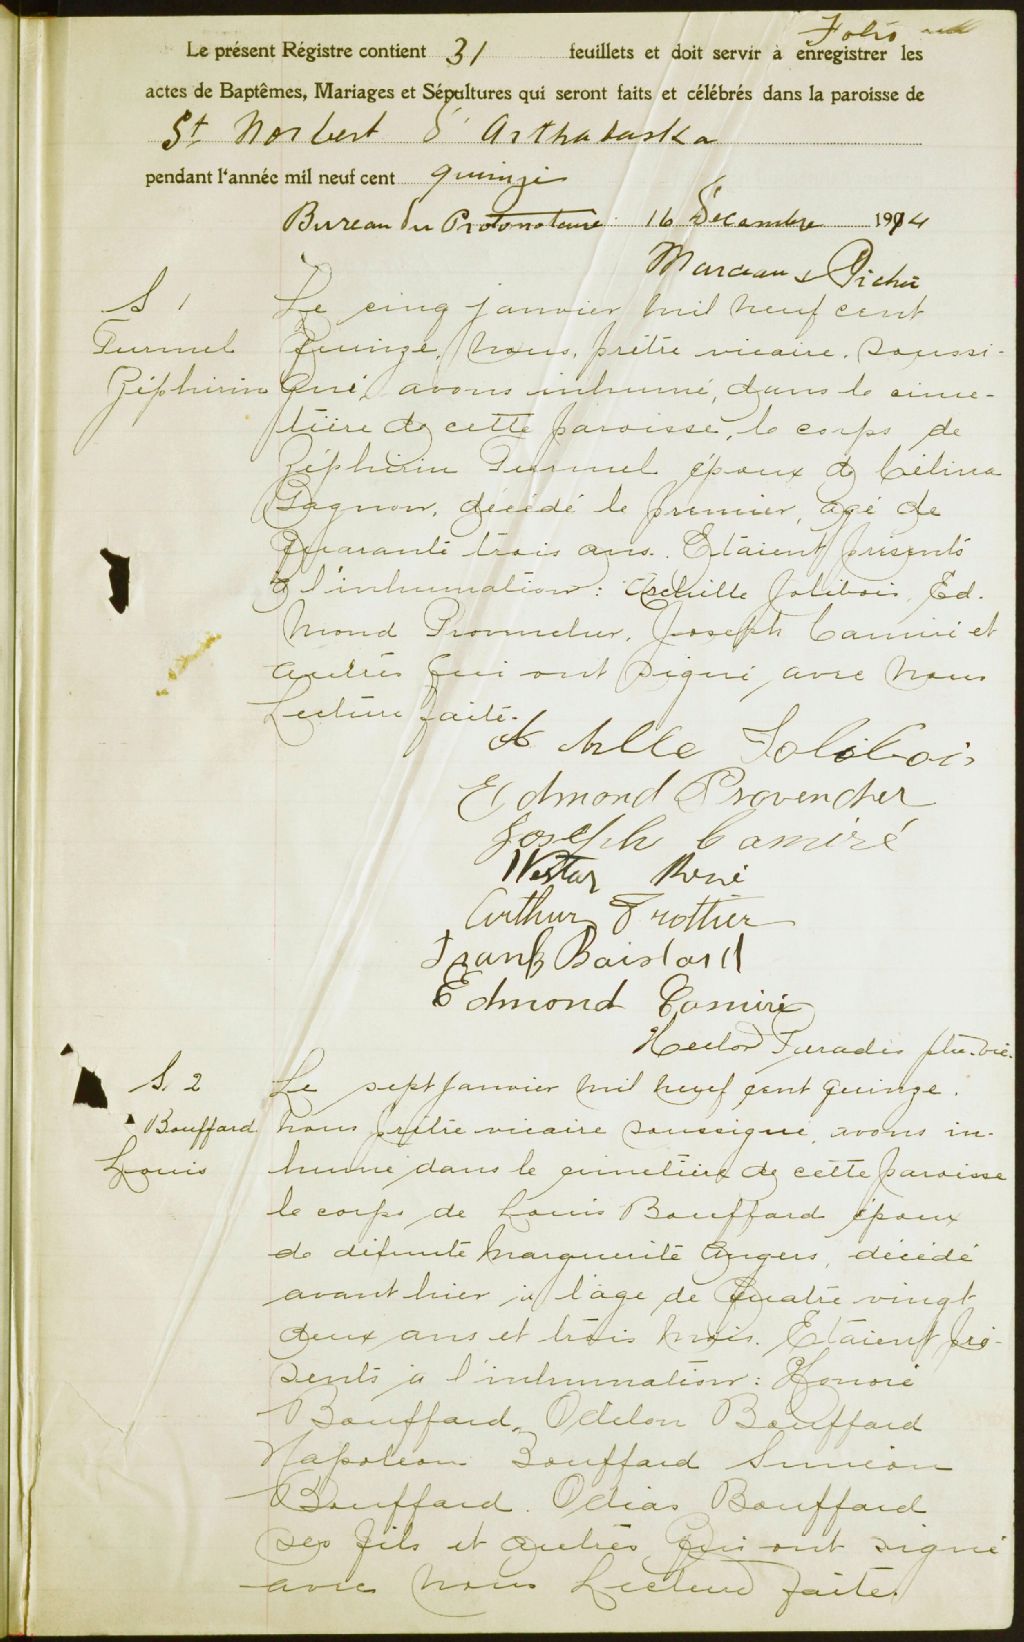 Folio
Le présent Régistre contient 31 feuillets et doit servir à enregistrer les
actes de Baptêmes, Mariages et Sépultures qui seront faits et célébrés dans la paroisse de
St Norbert d'Arthabaska
pendant l'année mil neuf cent quinze
Bureau du Protonotaire 16 Décembre 1914
Marceau & Piché
S 1
Turmel
Zéphirin
Le cinq janvier mil neuf cent
quinze, nous, prêtre vicaire soussi-
gné, avons inhumé, dans le cime-
tière de cette paroisse, le corps de
Zéphirin Turmel époux de Célina
Gagnon, décédé le premier, agé de
quarante trois ans. Etaient présents
à l'inhumation: Achille Jolibois, Ed.
mond Provencher, Joseph Camiré et
autres qui ont signé avec nous
Lecture faite.
Achille Jolibois
Edmond Provencher
Joseph Camiré
Nestor René
Arthur Trottier
Frank
Edmond Camiré
Hector Paradis ptre. vic.
S. 2
Bouffard
Louis
Le sept janvier mil neuf cent quinze.
nous prêtre vicaire soussigné, avons in-
humé dans le cimetière de cette paroisse
le corps de Louis Bouffard époux
de défunte Marguerite Angers, décédé
avant hier à l'age de quatre vingt
deux ans et trois mois. Etaient pré-
sents à l'inhumation: Honoré
Bouffard, Odilon Bouffard
Napoléon Bouffard Siméon
Bouffard. Odias Bouffard
ses fils et autres qui ont signé
avec nous Lecture faite.